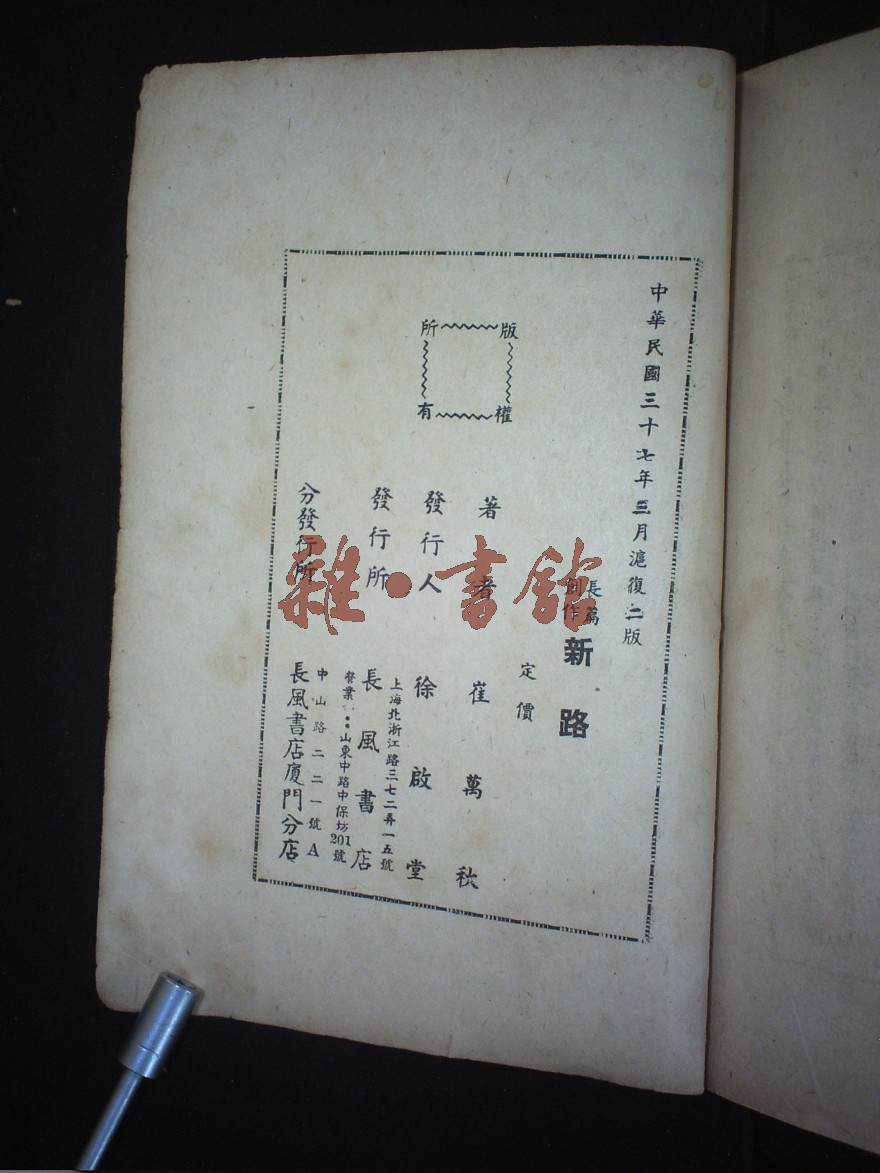 中華民國三十七年三月滬復二版
長篇創作
新路
定價
版權所有
著者 崔萬秋
發行人 徐啟堂
上海北浙江路三七二弄一五號
發行所 長風書店
營業：山東中路中保坊201號
中山路二二一號A
分發行所 長風書店廈門分店
雜·書館